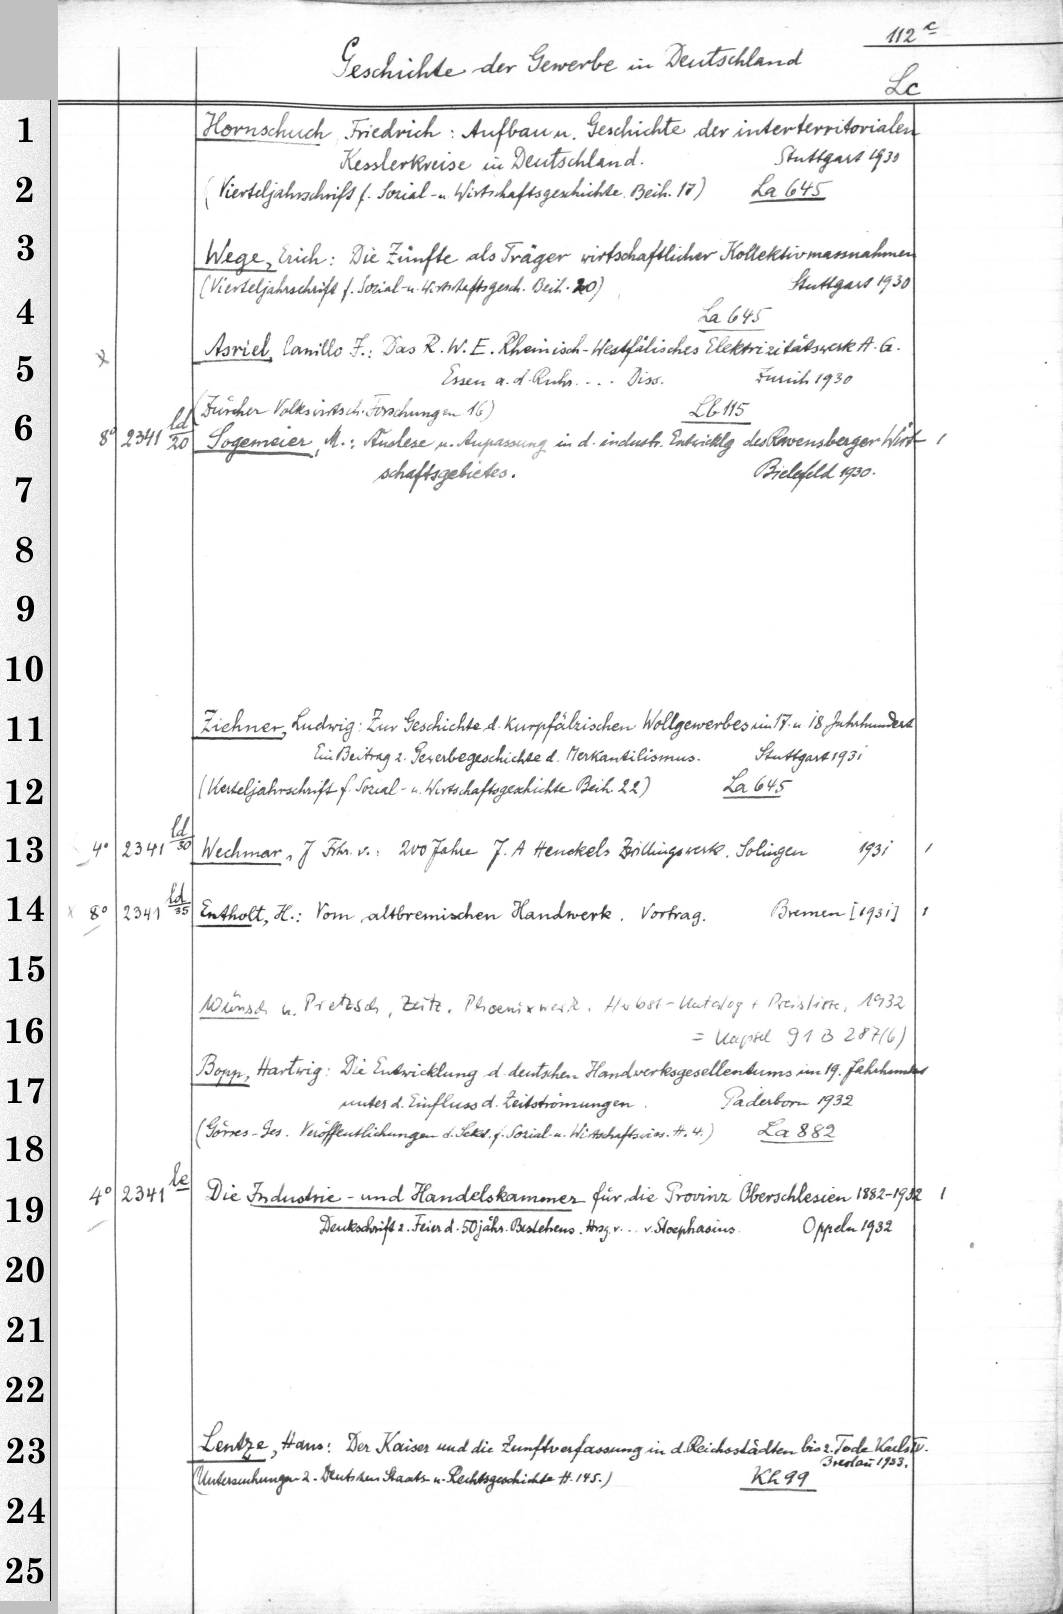 112 c
Geschichte der Gewerbe in Deutschland
Lc
1 Hornschuch, Friedrich: Aufbau u. Geschichte der interterritorialen
Kesslerkreise in Deutschland. Stuttgart 1930
2 (Vierteljahrschrift f. Sozial- u. Wirtschaftsgeschichte. Beih. 17) La 645
3 Wege, Erich: Die Zünfte als Träger wirtschaftlicher Kollektivmassnahmen
(Vierteljahrschrift f. Sozial- u. Wirtschaftsgesch. Beih. 20) Stuttgart 1930
4 La 645
5 x Asriel, Camillo J.: Das R.W.E. Rheinisch-Westfälisches Elektrizitätswerk A.G.
Essen a.d. Ruhr. . . . Diss. Zürich 1930
(Zürcher Volkswirtsch. Forschungen 16) Lb 115
6 8° 2341 ld/20 Sogemeier, M.: Auslese u. Anpassung in d. industr. Entwicklg des Ravensberger Wirt- 1
7 schaftsgebietes. Bielefeld 1930.
8
9
10
11 Ziehner, Ludwig: Zur Geschichte d. kurpfälzischen Wollgewerbes im 17. u 18. Jahrhundert
Ein Beitrag z. Gewerbegeschichte d. Merkantilismus. Stuttgart 1931
12 (Vierteljahrschrift f. Sozial- u. Wirtschaftsgeschichte Beih. 22) La 645
13 4° 2341 ld/30 Wechmar, J Frhr. v.: 200 Jahre J. A Henckels Zwillingswerk. Solingen 1931 1
14 x 8° 2341 ld/35 Entholt, H.: Vom altbremischen Handwerk. Vortrag. Bremen [1931] 1
15
Wünsch u. Pretzsch, Zeitz. Phoenixwerk. Herbst-Katalog + Preisliste, 1932
16 = Kapsel 91 B 287(6)
17 Bopp, Hartwig: Die Entwicklung d. deutschen Handwerksgesellentums im 19. Jahrhundert
unter d. Einfluss d. Zeitströmungen. Paderborn 1932
18 (Görres-Ges. Veröffentlichungen d. Sekt. f. Sozial- u. Wirtschaftswiss. H. 4.) La 882
19 4° 2341 le Die Industrie- und Handelskammer für die Provinz Oberschlesien 1882-1932 1
Denkschrift z. Feier d. 50jähr. Bestehens. Hrsg. v. . . v. Stoephasius. Oppeln 1932
20
21
22
23 Lentze, Hans: Der Kaiser und die Zunftverfassung in d. Reichsstädten bis z. Tode Karls IV.
Breslau 1933.
(Untersuchungen z. Deutschen Staats- u. Rechtsgeschichte H. 145.) Kh 99
24
25